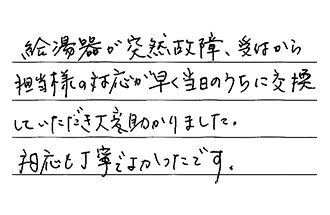 給湯器が突然故障、受付から
担当様の対応が早く当日のうちに交換
していただき大変助かりました。
対応も丁寧でよかったです。